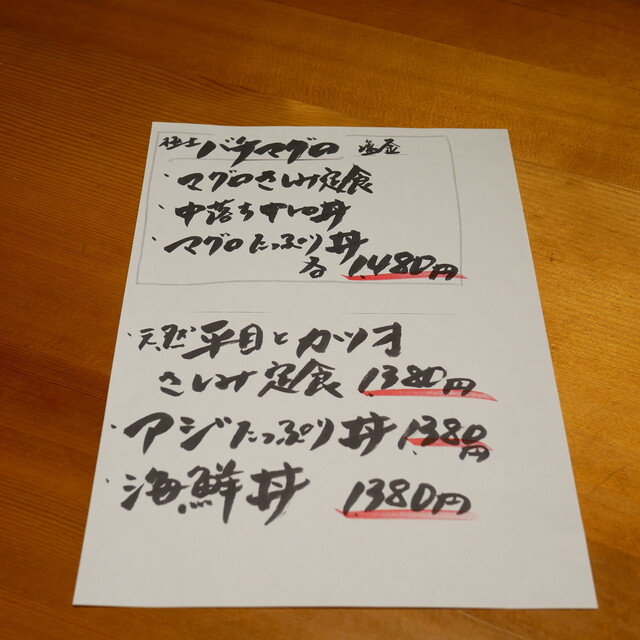 極上 バチマグロ 塩釜
・マグロさしみ定食
・中落ち丼
・マグロたっぷり丼
各 1,480円
・天然 平目とカツオ
さしみ定食 1380円
・アジたっぷり丼 1,380円
・海鮮丼 1380円